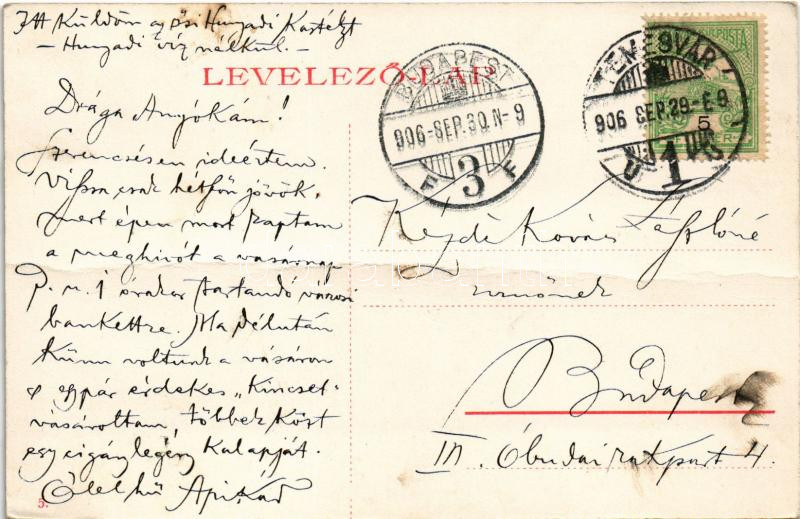 Itt küldöm az ősi Hunyadi Kastélyt
— Hunyadi víz nélkül. —
LEVELEZŐ-LAP
BUDAPEST
906-SEP.30.N-9
F 3 F
TEMESVÁR
906 SEP.29-E8
U 1
5
Drága Anyókám!
Szerencsésen ideértem.
Vissza csak hétfőn jövök,
mert épen most kaptam
a meghivót a vasárnap
p. u. 1 órakor tartandó városi
bankettre. Ma délután
künn voltunk a vásáron
s egypár érdekes „Kincset"
vásároltam, többek közt
egy cigánylegény kalapját.
Ölel hű Apikád
Kézdi Kovács Lászlóné
urnőnek
Budapest
III. Óbudai rakpart 4.
5.